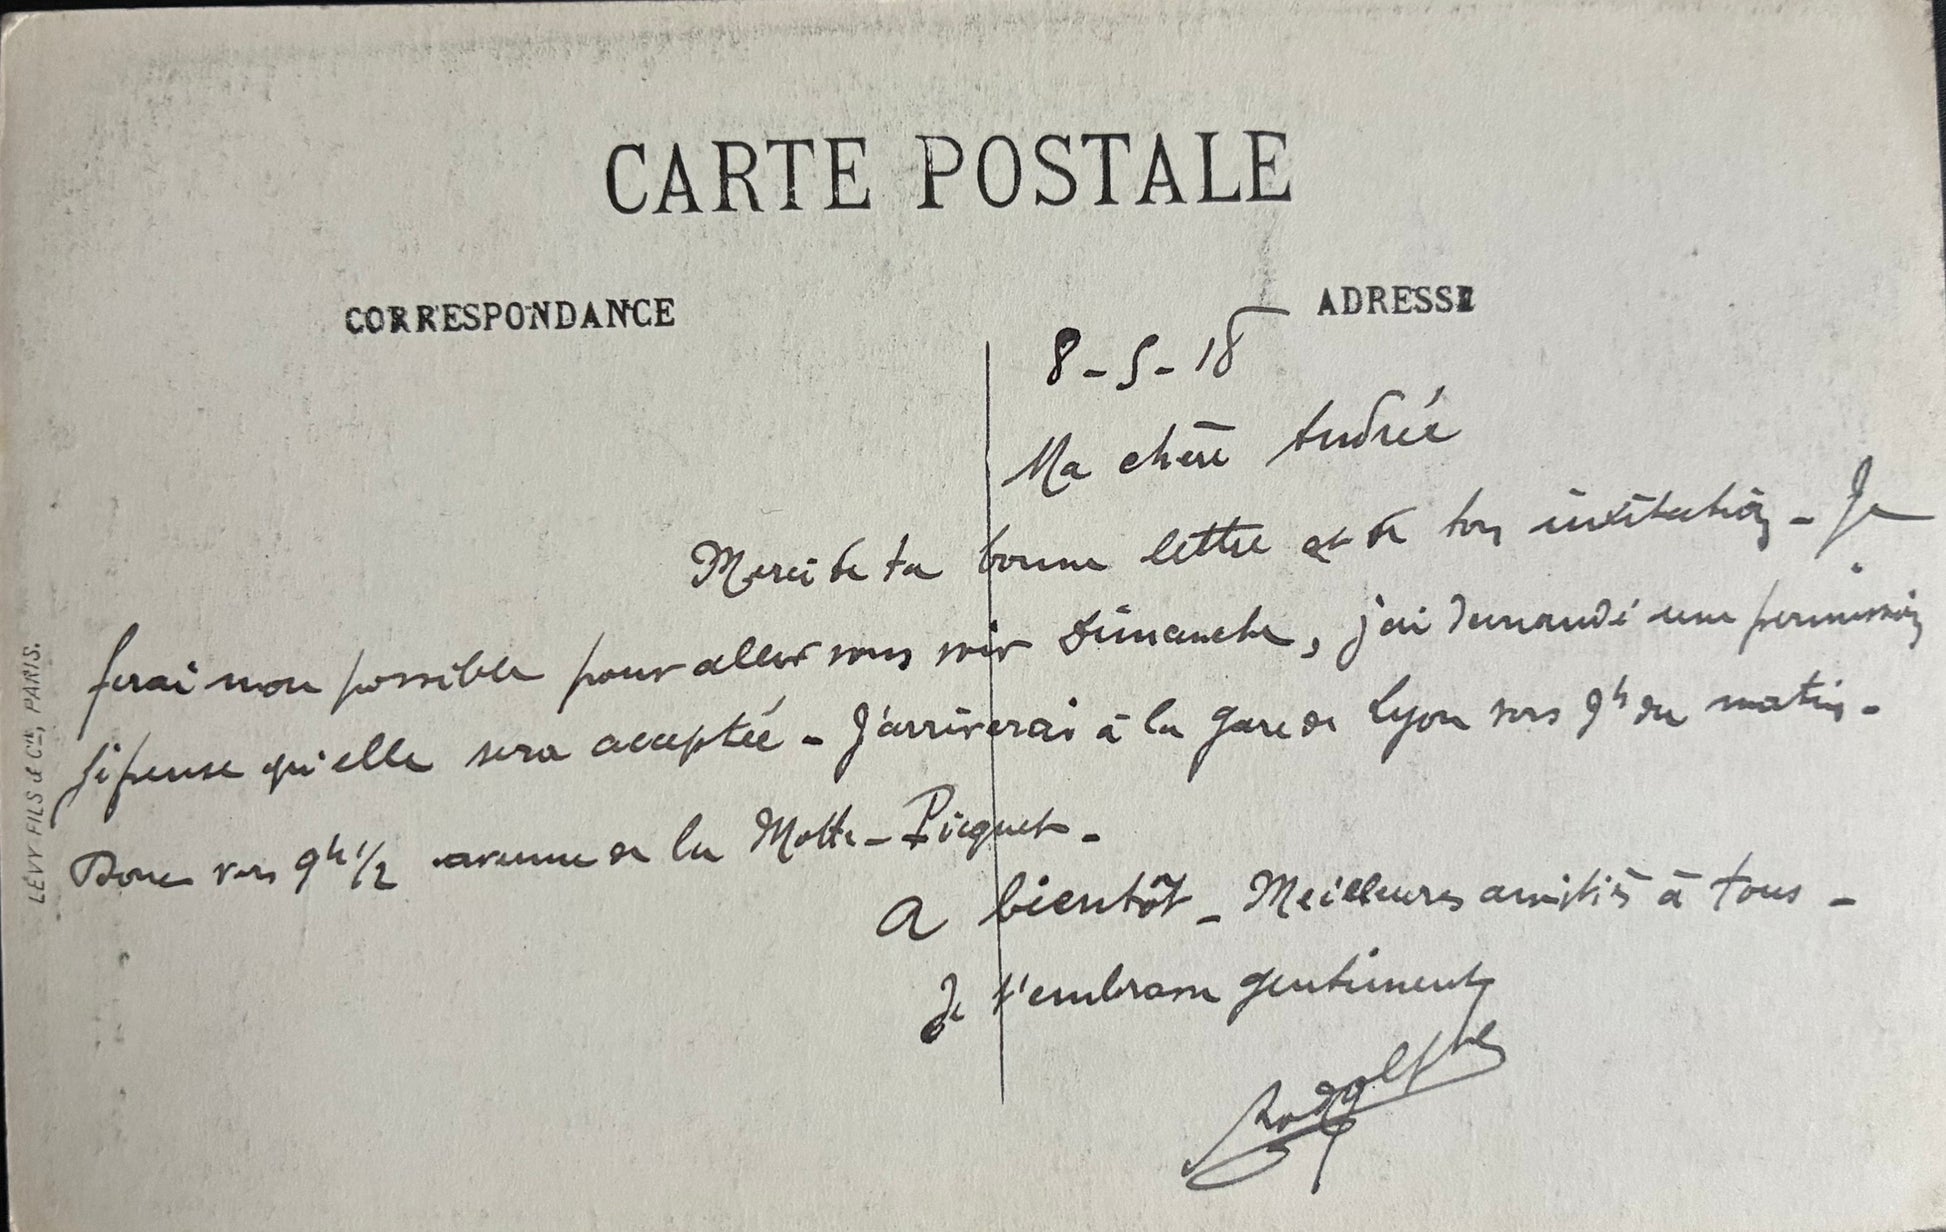 CARTE POSTALE
CORRESPONDANCE
ADRESSE
8-5-18
Ma chère Andrée
Merci de ta bonne lettre et de ton invitation - Je
ferai mon possible pour aller vous voir Dimanche, j'ai demandé une permission
Je pense qu'elle sera acceptée - J'arriverai à la gare de Lyon vers 9h du matin -
Donc vers 9h 1/2 avenue de la Motte-Picquet -
A bientôt - Meilleures amitiés à tous -
Je t'embrasse gentiment
Rodolphe
LÉVY FILS & Cie, PARIS.